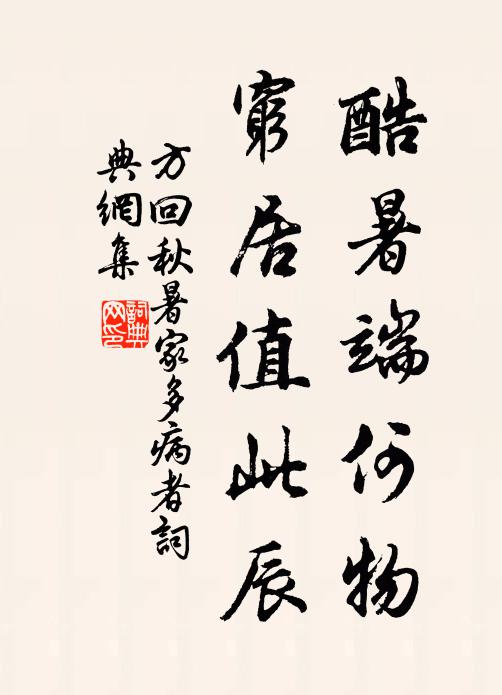 酷暑端何物
窮居值此辰
方回秋暑家多病者詞
典網集
詞典
网印